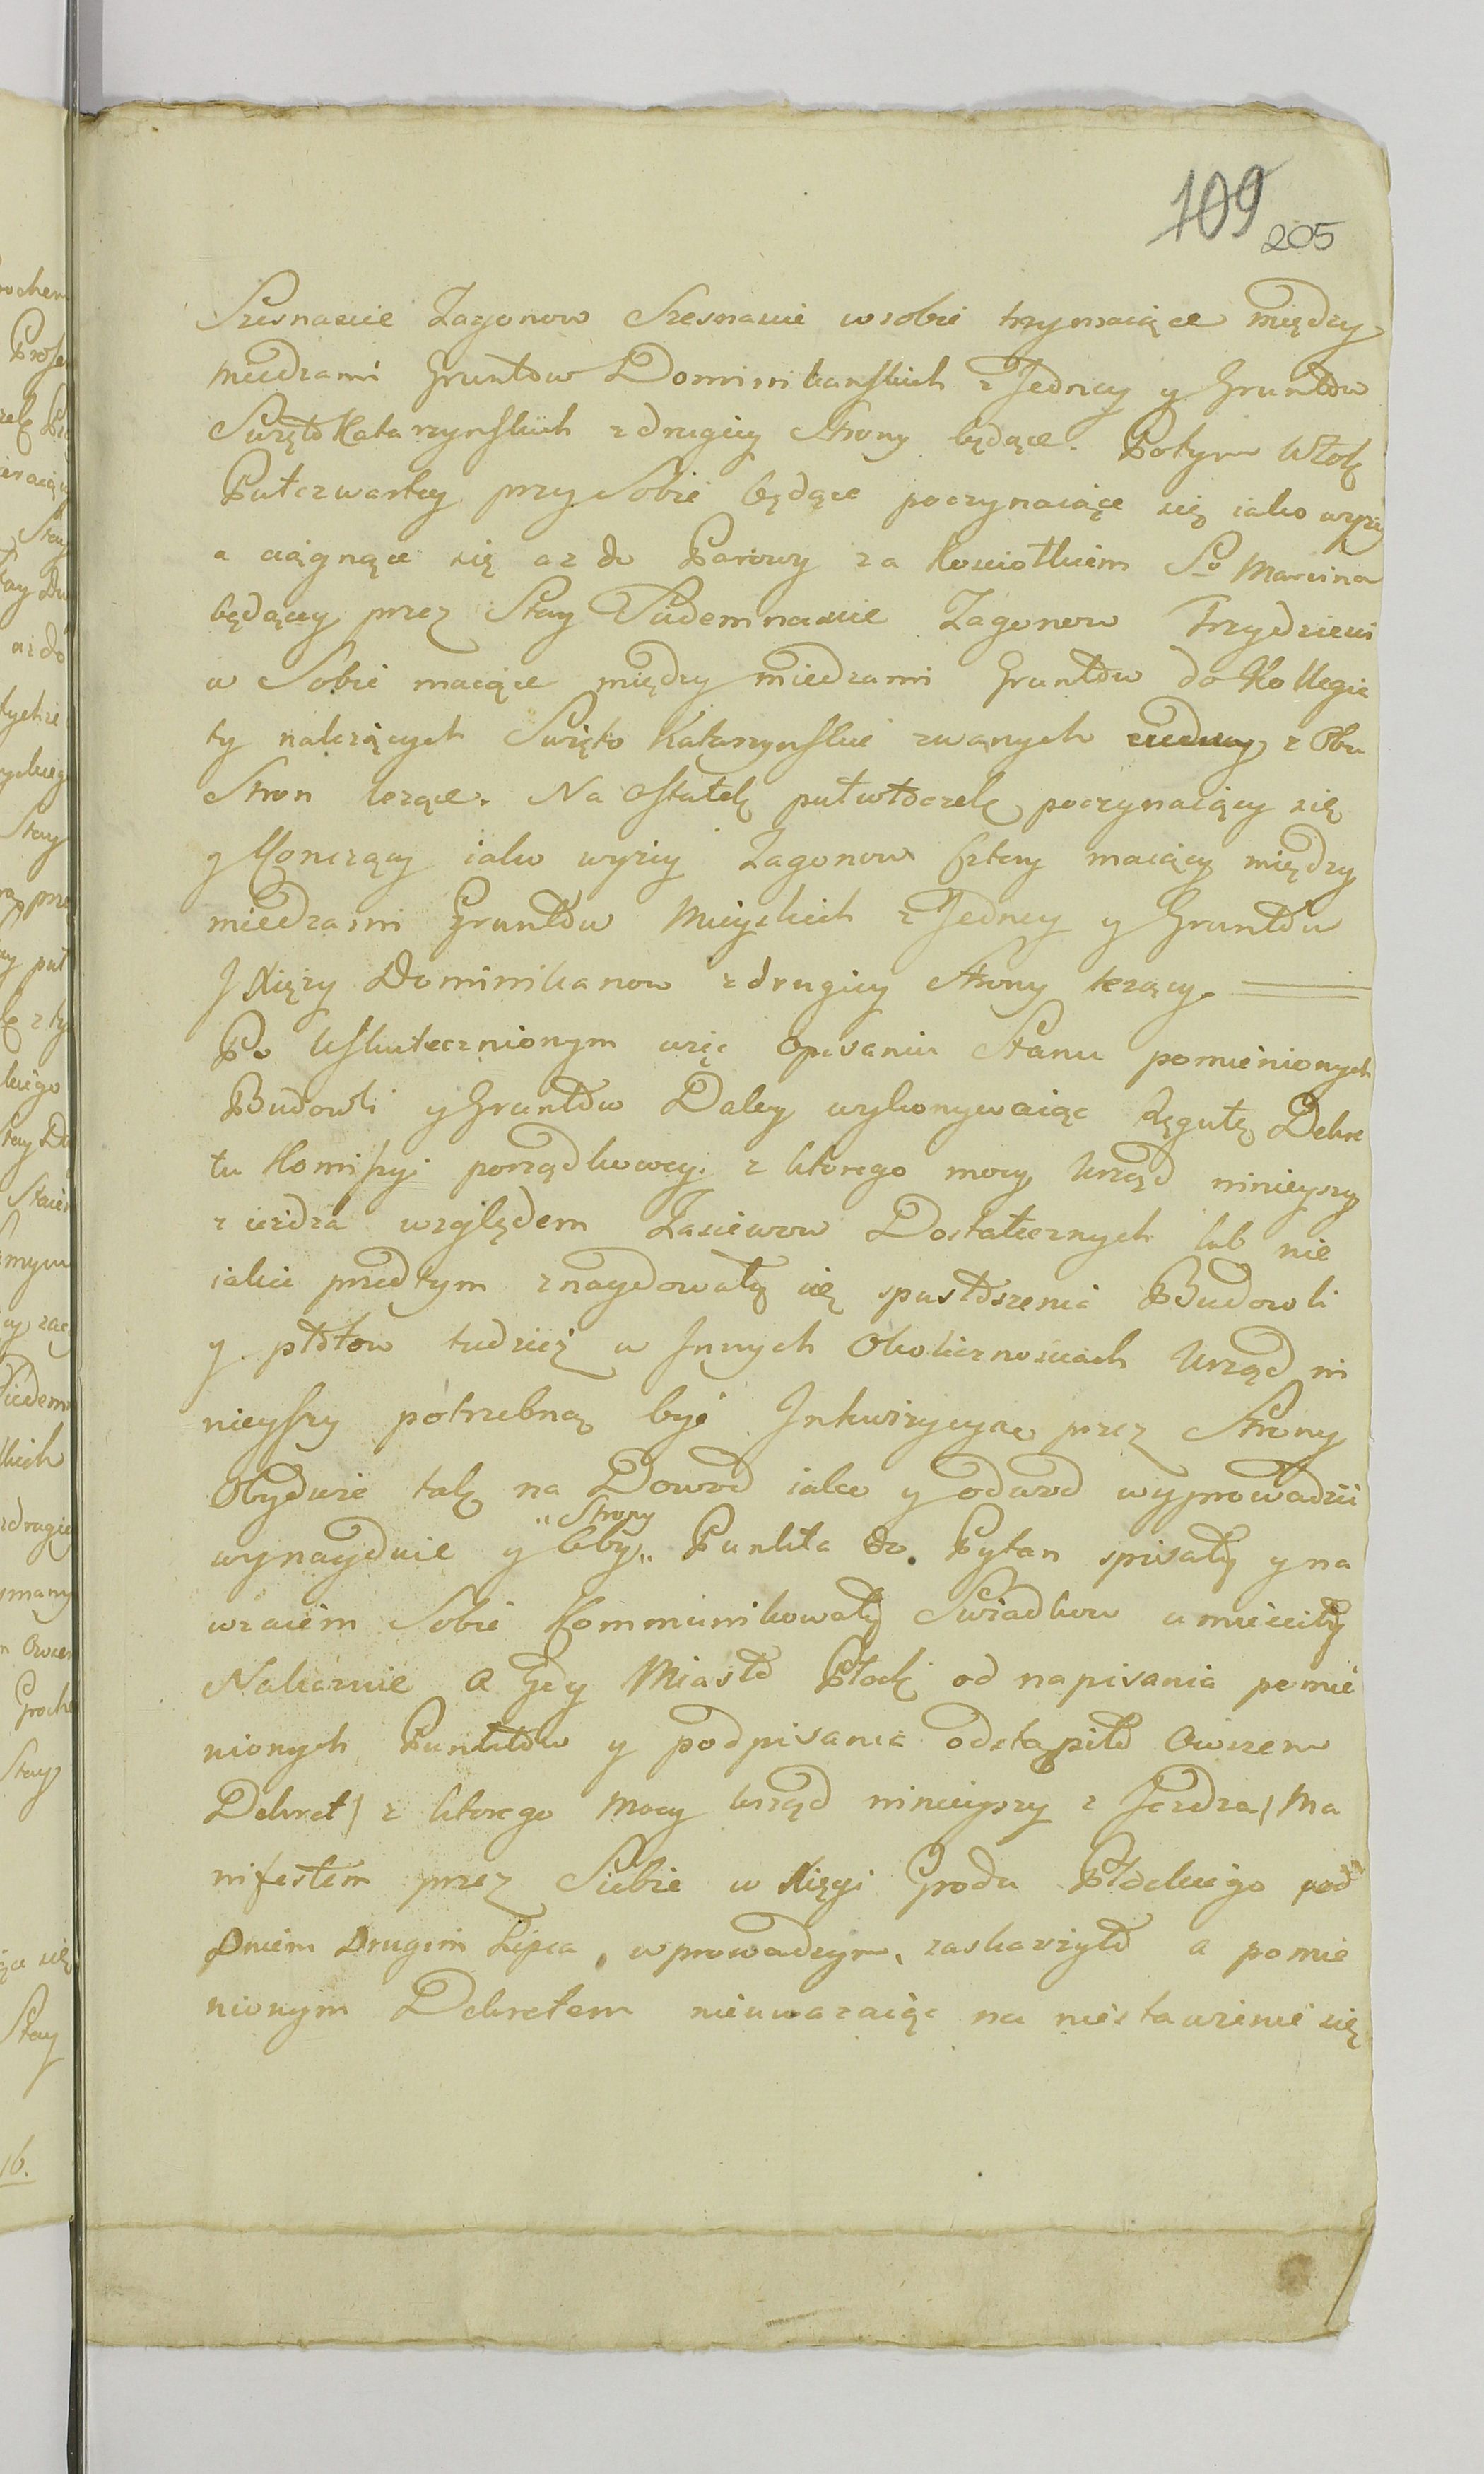 109
205
Szesnascie Zagonow Szesnascie w sobie trzymaiące między
miedzami Gruntow Dominikanskich z Jedney y Gruntow
Swięto Katarzynskich z drugiey Strony będące. Potym Włok
Pułczwartey przy Sobie będące poczynaiące się iako wyzey
a ciągnące się az do Parowy za Kosciołkiem So Marcina
będącey przez Stay Siedemnascie Zagonow Trzydziesci
w Sobie maiące między miedzami Gruntow do Kollegia
ty nalezących Swięto Katarzynskie zwanych z Obu
Stron lezące. Na Ostatek pułwłoczek poczynaiący się
y Konczący iako wyziy Zagonow Cztery maiący między
miedzami Gruntow Mieyskich z Jedney y Gruntow
J Xięzy Dominikanow z drugiey Strony lezący.
Po Uskutecznionym więc Opisaniu Stanu pomienionych
Budowli y Gruntow Daley wykonywaiąc Regułę Dekre
tu Komissyi porządkowey z ktorego mocy Urząd ninieyszy
zieżdza względem Zasiewow Dostatecznych lub nie
iakie przedtym znaydowały się spustoszenia Budowli
y płotow tudziez w Innych Okolicznosciach Urząd ni
nieyszy potrzebną być Inkwizycyą przez Strony
Obydwie tak na Dowod iako y odwod wyprowadzić
„Strony
wynayduie y Azeby„ Punkta do Pytan spisały y na
wzaiem Sobie Kommunikowały Swiadkow umiescity
Nakazuie a Gdy Miasto Płock od napisania pomie
nionych Punktow y podpisania odstąpiło Owszem
Dekret / z ktorego Mocy Urząd ninieyszy z Jezdza / Ma
nifestem przez Siebie w Xięgi Grodu Płockiego pod
Dniem Drugim Lipca, wprowadzym, zaskarzyło a pomie
nionym Dekretem nieuwazaiąc na niestawienie się